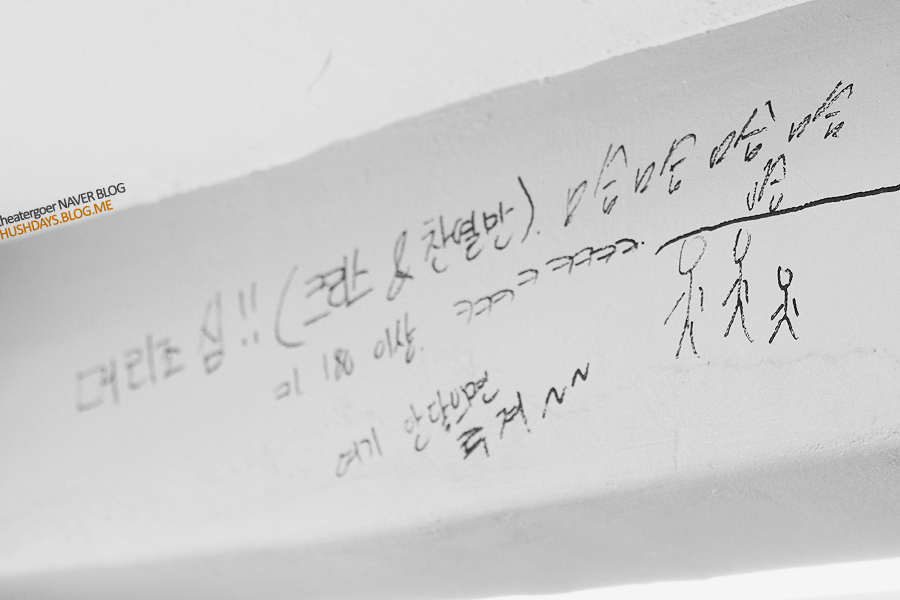 theatergoer NAVER BLOG
HUSHDAYS.BLOG.ME
머리조심!! ( & 찬열만).
180 이상. ㅋㅋㅋㅋㅋㅋㅋㅋ.
여기 안닿으면
루져 ~~